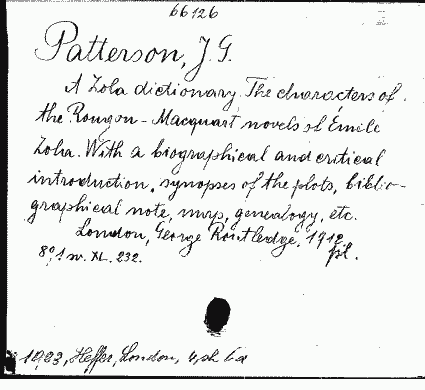 66126
Patterson, J.G.
A Zola dictionary. The characters of
the Rougon-Macquart novels of Émile
Zola. With a biographical and critical
introduction, synopses of the plots, biblio-
graphical note, map, genealogy, etc.
London, George Routledge, 1912.
8°, 1 w. XL. 232. pl.
1923, Heffer, London,